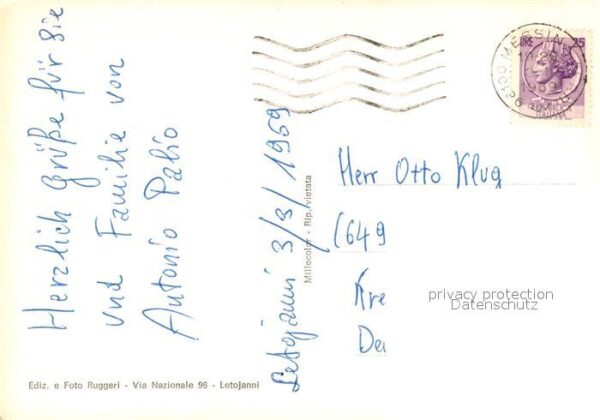 Herzlich Grüße für Sie
und Familie von
Antonio Palio
Letojanni 3/3/1969
Millecolor - Rip. vietata
Herr Otto Klug
(649
Kre
De
privacy protection
Datenschutz
LIRE 25
MESSINA
1969
ITALIANA
Ediz. e Foto Ruggeri - Via Nazionale 96 - Letojanni